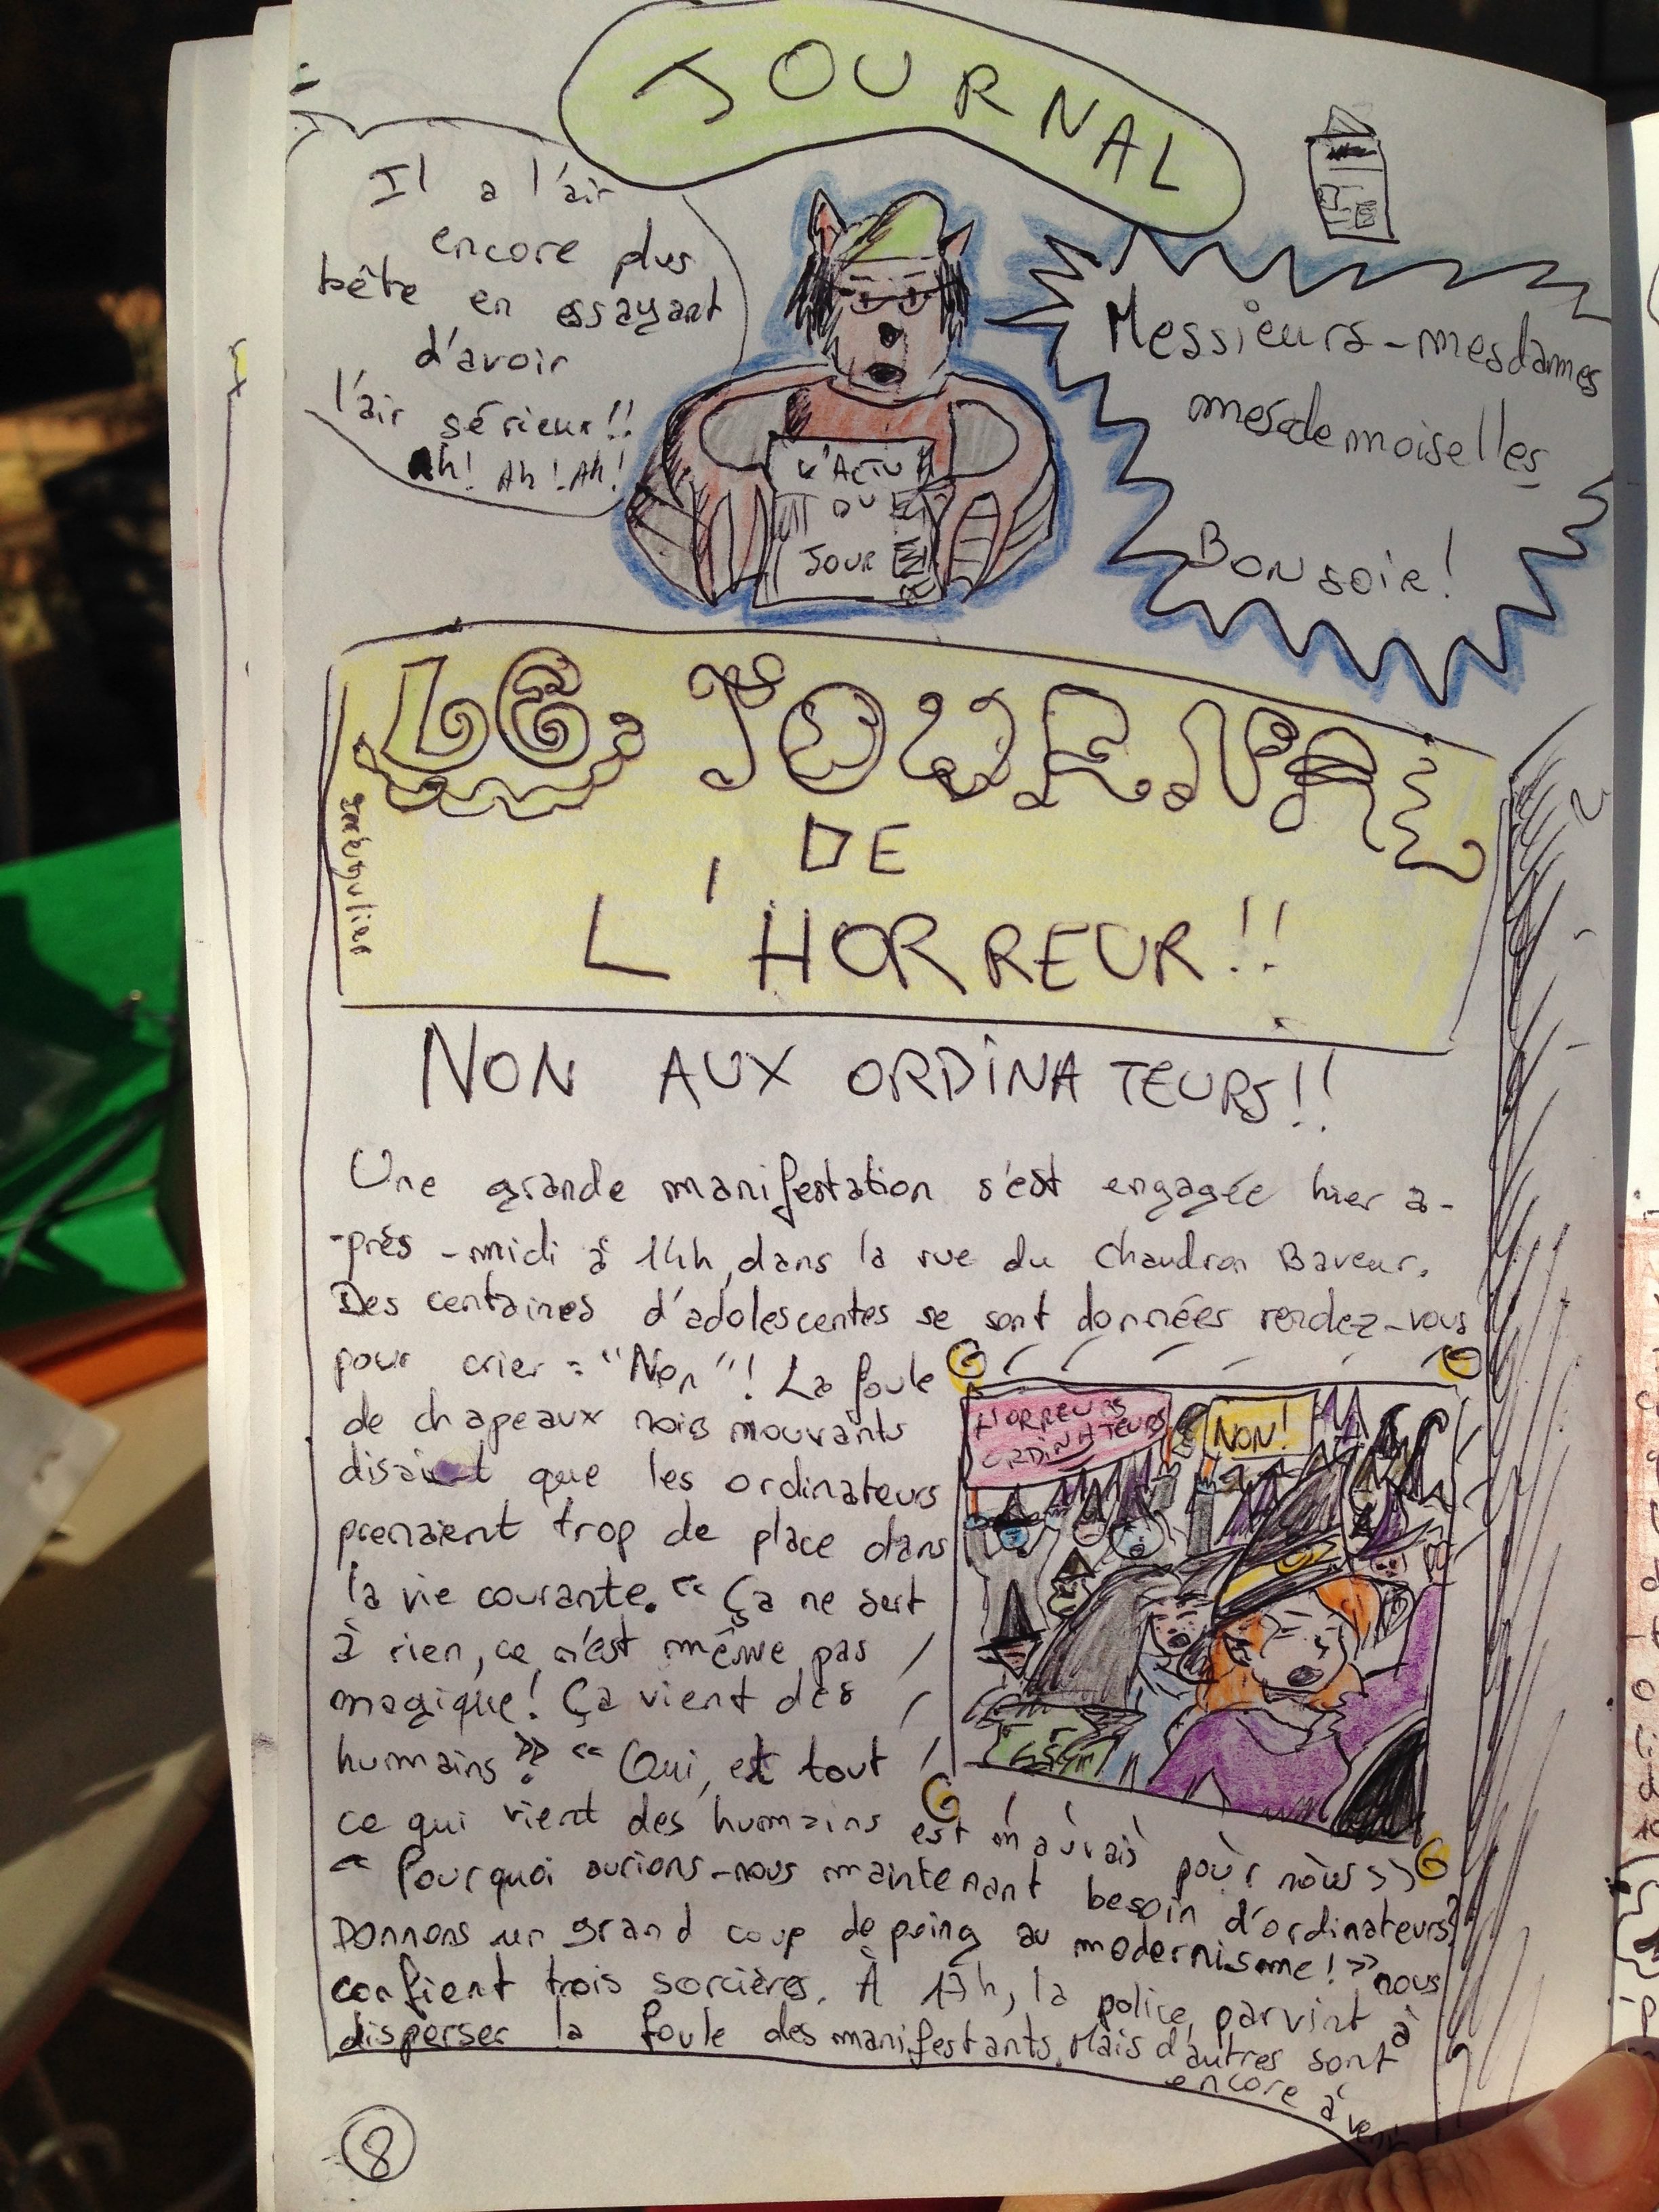 JOURNAL
Il a l'air
encore plus
bête en essayant
d'avoir
l'air sérieux!!
Ah! Ah! Ah!
L'ACTU
DU
JOUR
Messieurs-mesdames
mesdemoiselles
Bonsoir!
LE JOURNAL
DE
L'HORREUR!!
NON AUX ORDINATEURS!!
Une grande manifestation s'est engagée hier a-
-près-midi à 14h, dans la rue du Chaudron Baveur.
Des centaines d'adolescentes se sont données rendez-vous
pour crier : "Non"! La foule
de chapeaux noirs mouvants
disait que les ordinateurs
prenaient trop de place dans
la vie courante. « Ça ne sert
à rien, ce n'est même pas
magique! Ça vient des
humains » « Oui, et tout
ce qui vient des humains est mauvais pour nous »
« Pourquoi aurions-nous maintenant besoin d'ordinateurs?
Donnons un grand coup de poing au modernisme! » nous
confient trois sorcières. À 17h, la police parvint à
disperser la foule des manifestants. Mais d'autres sont
encore à venir
HORREURS
ORDINATEURS
NON!
8